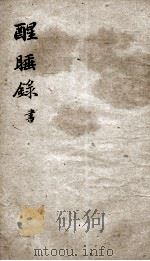 醒睡錄 書
研狗
mtoou.info